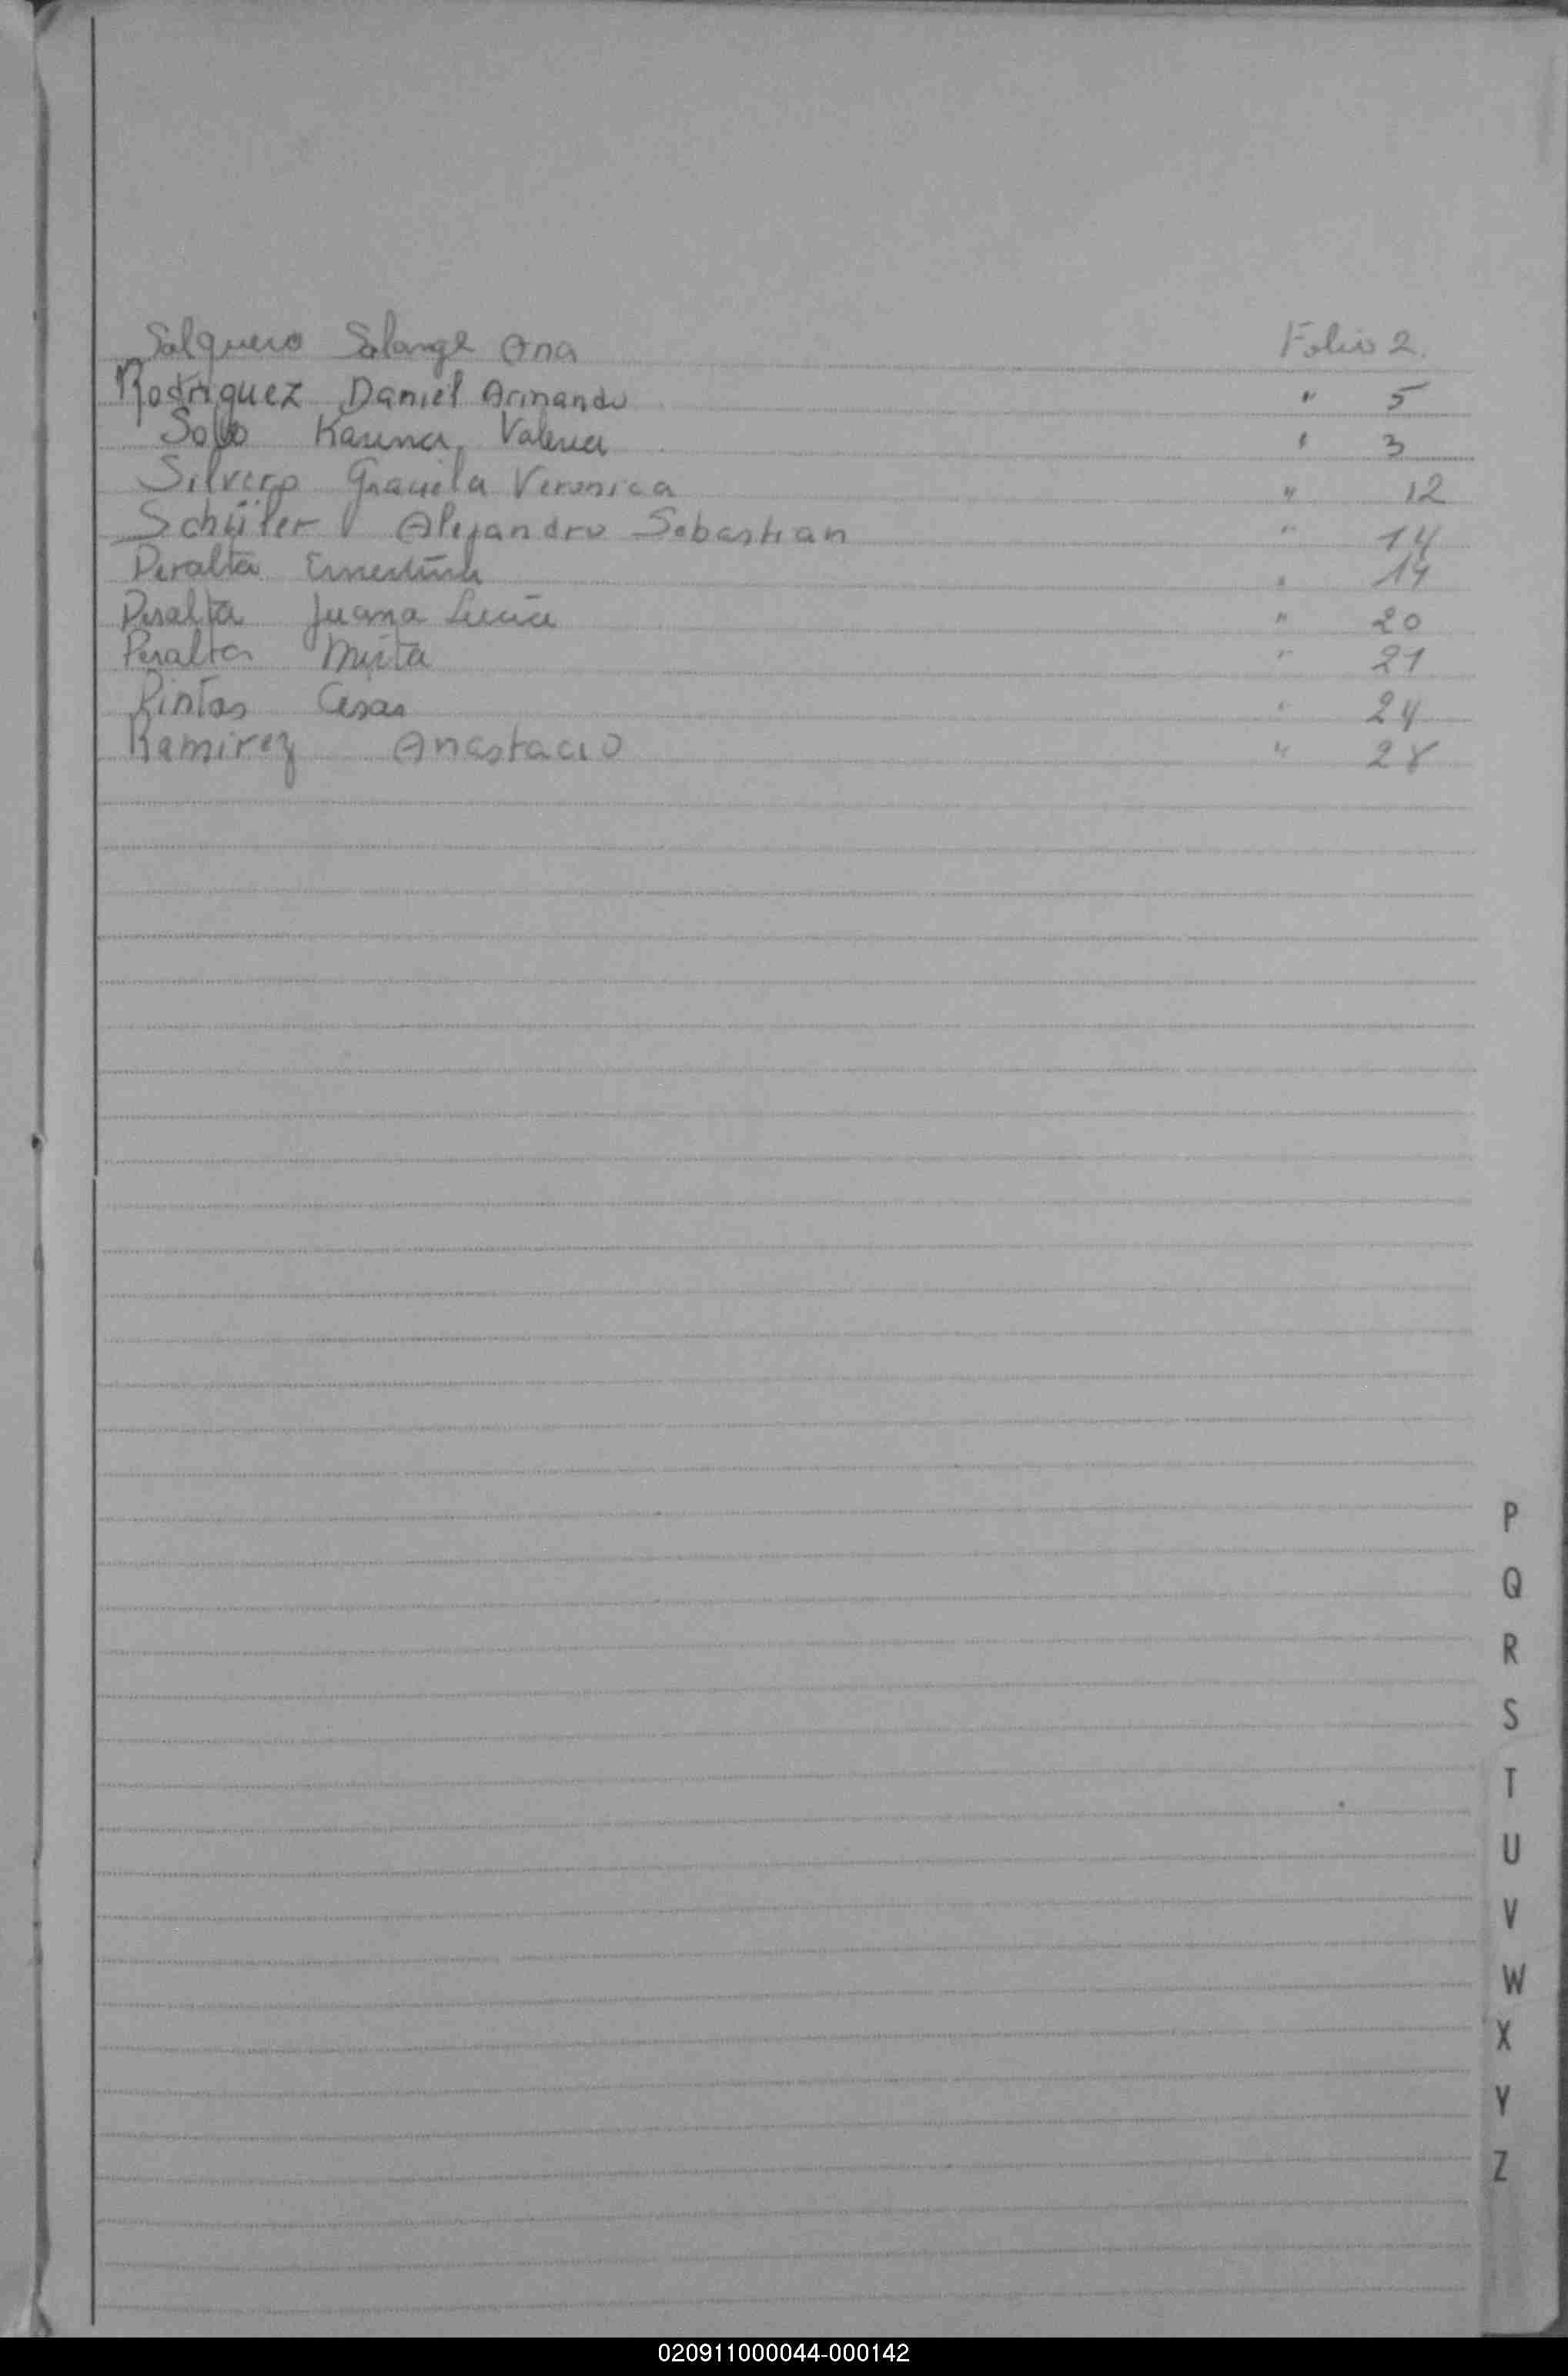 Salguero Solange Ana Folio 2.
Rodriguez Daniel Armando " 5
Karina Valeria " 3
Silvero Graciela Veronica " 12
Schüler Alejandro Sebastian " 14
Peralta Ernestina " 14
Peralta Juana Lucia " 20
Peralta Mirta " 21
Cesar " 24
Ramirez Anastacio " 28
P
Q
R
S
T
U
V
W
X
Y
Z
020911000044-000142